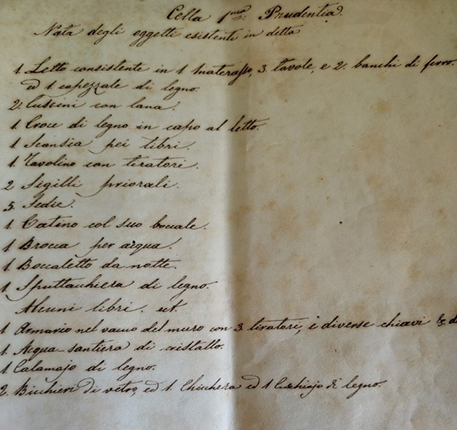 Cella 1ma Prudentia
Nota degli oggetti esistenti in detta
1 Letto consistente in 1 materasso, 3 tavole, e 2 banchi di ferro.
ed 1 capezzale di legno.
2 Cuscini con lana.
1 Croce di legno in capo al letto.
1 Scansia pei libri.
1 Tavolino con tiratori.
2 Sigilli priorali.
3 Sedie.
1 Catino col suo bocale.
1 Brocca per acqua.
1 Boccaletto da notte.
1 Sputtachiera di legno.
Alcuni libri. ut.
1 Armario nel vacuo del muro con 3 tiratori, e diverse chiavi
1 Acqua santiera di cristallo.
1 Calamajo di legno.
2 Bicchieri di vetro, ed 1 Chichera ed 1 Cuchiajo di legno.